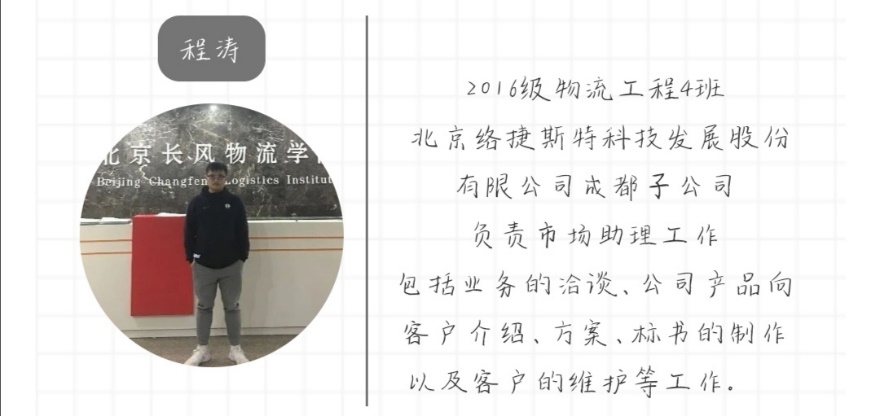 程涛
北京长风物流学
Beijing Changfeng Logistics Institut
2016级物流工程4班
北京络捷斯特科技发展股份
有限公司成都子公司
负责市场助理工作
包括业务的洽谈、公司产品向
客户介绍、方案、标书的制作
以及客户的维护等工作.